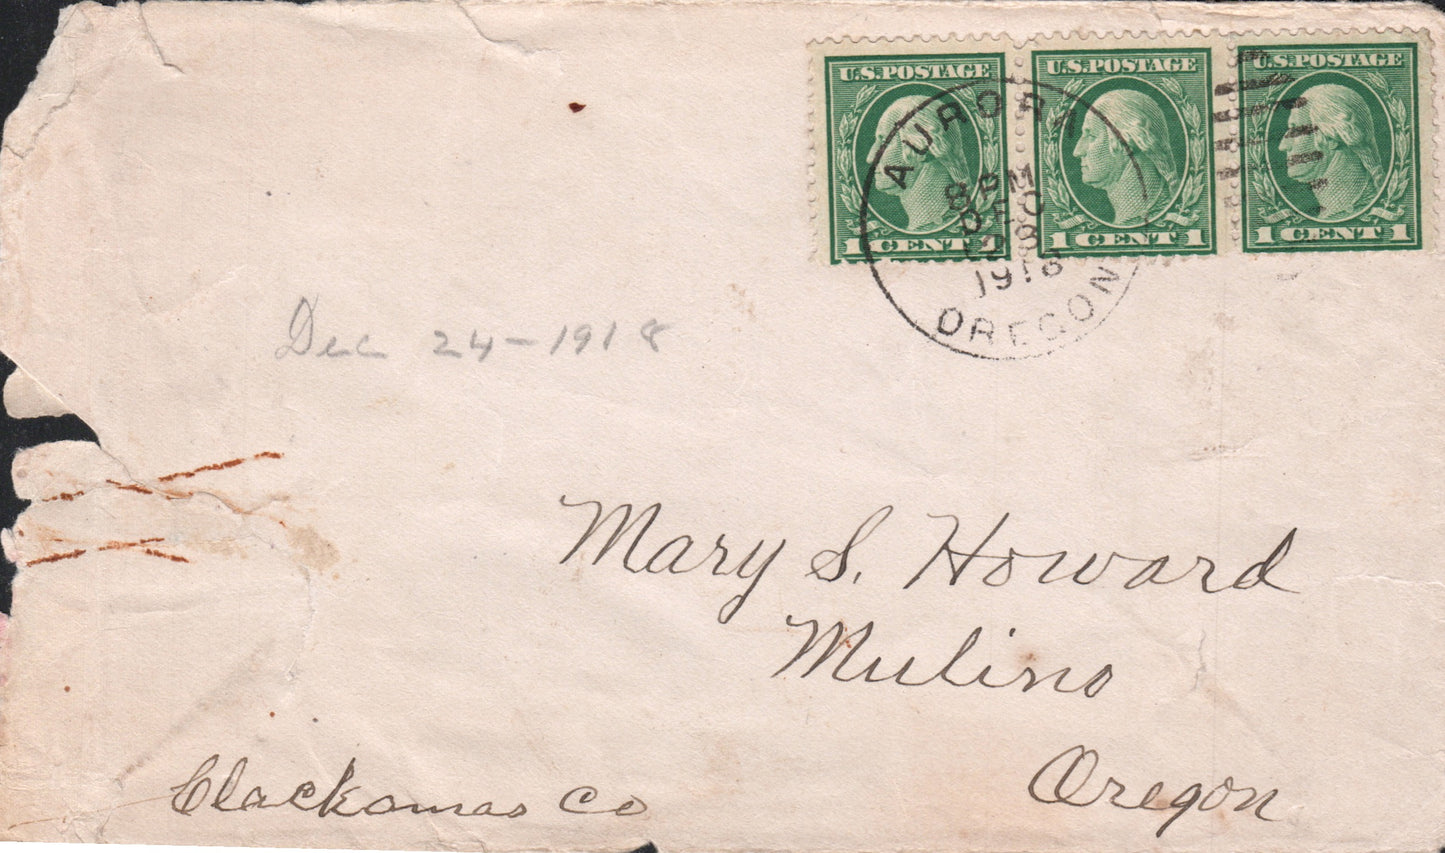 U.S. POSTAGE U.S. POSTAGE U.S. POSTAGE
1 CENT 1 1 CENT 1 1 CENT 1
AURORA
8 PM
DEC
28
1918
OREGON
Dec 24-1918
Mary S. Howard
Mulino
Oregon
Clackamas Co